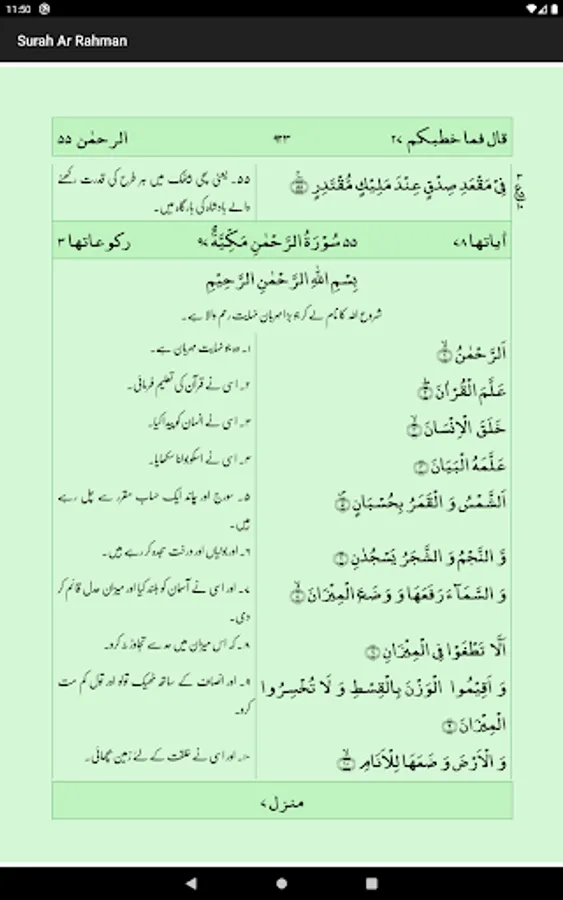 11:50
Surah Ar Rahman
قال فما خطبكم ٢٧
٩٢٣
الرحمٰن ٥٥
فِيْ مَقْعَدِ صِدْقٍ عِنْدَ مَلِيْكٍ مُّقْتَدِرٍ ﴿٥٥﴾
٥٥۔ یعنی سچی بیٹھک میں ہر طرح کی قدرت رکھنے
والے بادشاہ کی بارگاہ میں۔
اٰیاتها ٧٨
٥٥ سُوْرَةُ الرَّحْمٰنِ مَكِّيَّةٌ ٩٧
رکوعاتها ٣
بِسْمِ اللهِ الرَّحْمٰنِ الرَّحِيْمِ
شروع اللہ کا نام لے کر جو بڑا مہربان نہایت رحم والا ہے۔
اَلرَّحْمٰنُ ﴿١﴾
١۔ وہ جو نہایت مہربان ہے۔
عَلَّمَ الْقُرْاٰنَ ﴿٢﴾
٢۔ اسی نے قرآن کی تعلیم فرمائی۔
خَلَقَ الْاِنْسَانَ ﴿٣﴾
٣۔ اسی نے انسان کو پیدا کیا۔
عَلَّمَهُ الْبَيَانَ ﴿٤﴾
٤۔ اسی نے اسکو بولنا سکھایا۔
اَلشَّمْسُ وَ الْقَمَرُ بِحُسْبَانٍ ﴿٥﴾
٥۔ سورج اور چاند ایک حساب مقرر سے چل رہے
ہیں۔
وَّ النَّجْمُ وَ الشَّجَرُ يَسْجُدٰنِ ﴿٦﴾
٦۔ اور بوٹیاں اور درخت سجدہ کر رہے ہیں۔
وَ السَّمَآءَ رَفَعَهَا وَ وَضَعَ الْمِيْزَانَ ﴿٧﴾
٧۔ اور اسی نے آسمان کو بلند کیا اور میزان عدل قائم کر
دی۔
اَلَّا تَطْغَوْا فِي الْمِيْزَانِ ﴿٨﴾
٨۔ کہ اس میزان میں حد سے تجاوز نہ کرو۔
وَ اَقِيْمُوا الْوَزْنَ بِالْقِسْطِ وَ لَا تُخْسِرُوا
الْمِيْزَانَ ﴿٩﴾
٩۔ اور انصاف کے ساتھ ٹھیک تولو اور تول کم مت
کرو۔
وَ الْاَرْضَ وَضَعَهَا لِلْاَنَامِ ﴿١٠﴾
١٠۔ اور اسی نے خلقت کے لئے زمین بچھائی۔
منزل ٧